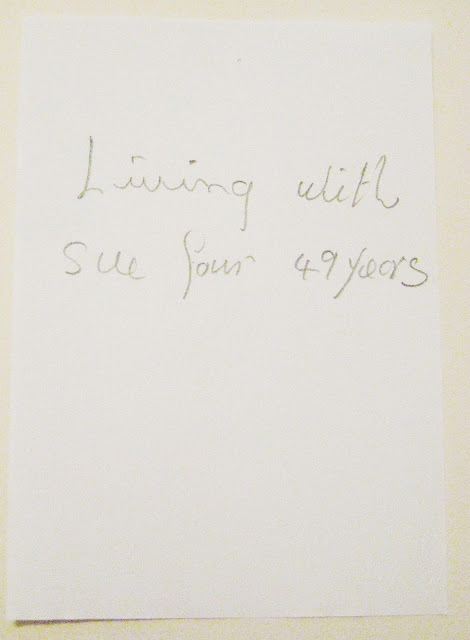 Living with
Sue four 49 years